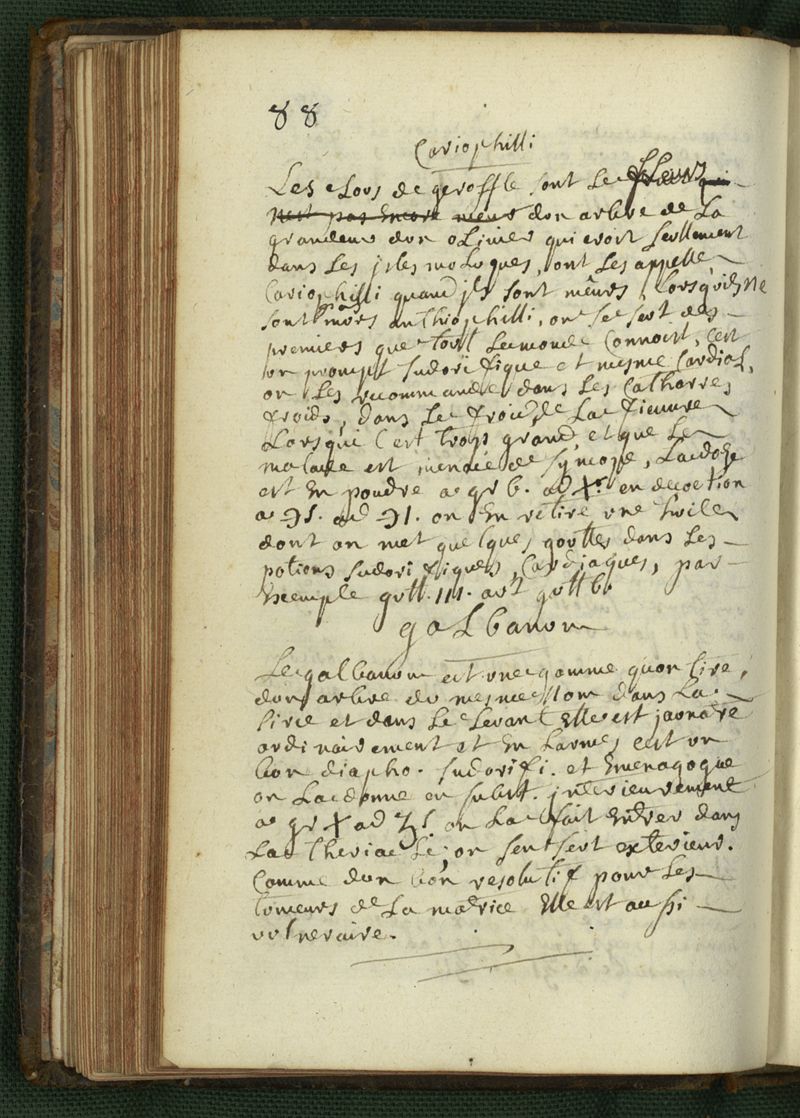 88
Cariophilli
Les Clous de geroffle sont Les fleurs qui
nest pas Encore meur dun arbre de La
grandeur dun olivier qui croit seullement
dans Les jsles moluques, ont Les appelle
Cariophilli quand jls sont meurs, Lorsquils ne
sont murs anthiophilli, on se sert des
premiers que tout Le monde Connoit, Cest
un prompt sudorifique et mesme Cardiaq,
on Les recommande dans Les Catharres
froids, dans Le froid de La fievvre
Lorsqui Cest trop grand, et que Le
malade est menacé de syncope, La doze
est En poudre a gr 6. ad X. en decoction
a ℈ſ. ad ℈1. on En retire une huile
dont on met quelques gouttes dans Les
potions sudorifiques, Cardiaques, par
Exemple gutt. 111. aut gutt 6.
galbanum
Le galbanum est une gomme quon tire,
dun arbre du mesme Nom dans La
sirie et dans Le Levant Elle est jaunatre
ordinairement et En Larmes cest un
bon diapho. sudorifi. et Emenagogue
on La donne en subst. jnterieurement
a gr X ad ʒſ. on La fait Entrer dans
La Theriaque, on sen sert exterieur.
Comme dun bon resolutif pour Les
tumeurs de La matrice Elle est aussi
vulneraire.